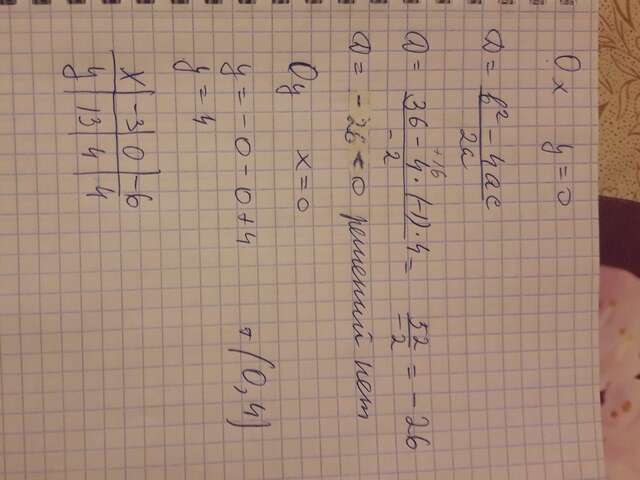 Ox y=0
D = b² - 4ac / 2a
D = 36 - 4·(-1)·4 / -2 = 52 / -2 = -26
+16
D = -26 < 0 решений нет
Oy x=0
y = -0 - 0 + 4 т (0, 4)
y = 4
x | -3 | 0 | -6
y | 13 | 4 | 4